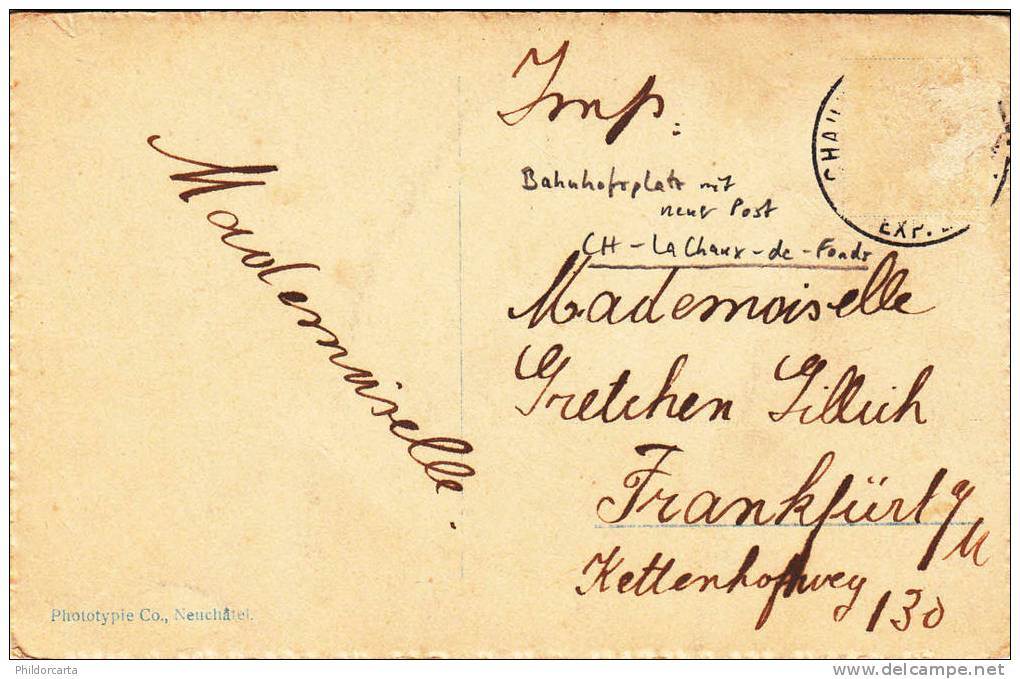 Imp.
CHAU
EXP.
Bahnhofsplatz mit
neuer Post
CH - La Chaux-de-Fonds
Mademoiselle.
Mademoiselle
Gretchen Gillich
Frankfürt a/M
Kettenhofweg
130
Phototypie Co., Neuchâtel.
Phildorcarta
www.delcampe.net